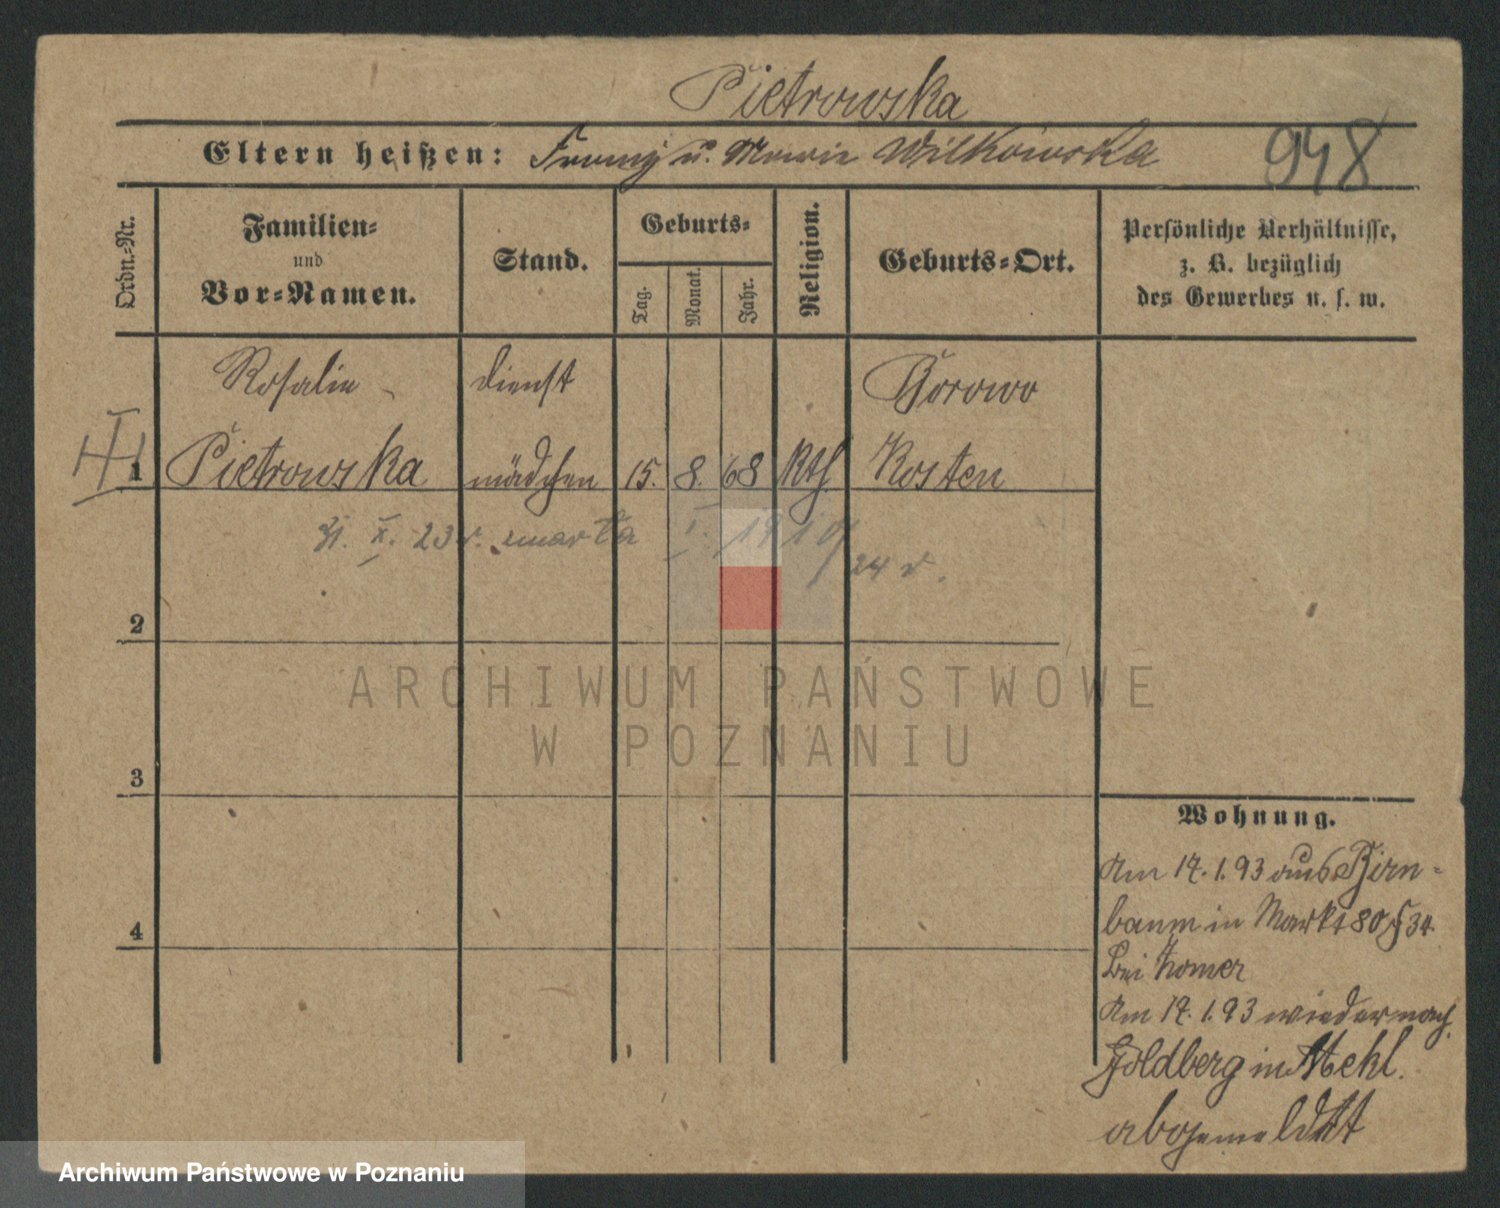 Pietrowska
Eltern heißen: Franz u. Marie Wilkowska
948
Ordn.-Nr.
Familien- und Vor-Namen.
Stand.
Geburts-
Tag.
Monat.
Jahr.
Religion.
Geburts-Ort.
Persönliche Verhältnisse,
z. B. bezüglich
des Gewerbes u. s. w.
Rosalie dienst Borowo
III
1 Pietrowska mädchen 15. 8. 68 Kth. Kosten
31. X. 23 r. umarła I. 1910/24 r.
2
ARCHIWUM PAŃSTWOWE
W POZNANIU
3
Wohnung.
Am 17.1.93 aus Birn-
baum in Markt 80 34.
bei
4
Am 17.1.93 wieder nach
Goldberg in Mekl.
abgemeldet
Archiwum Państwowe w Poznaniu